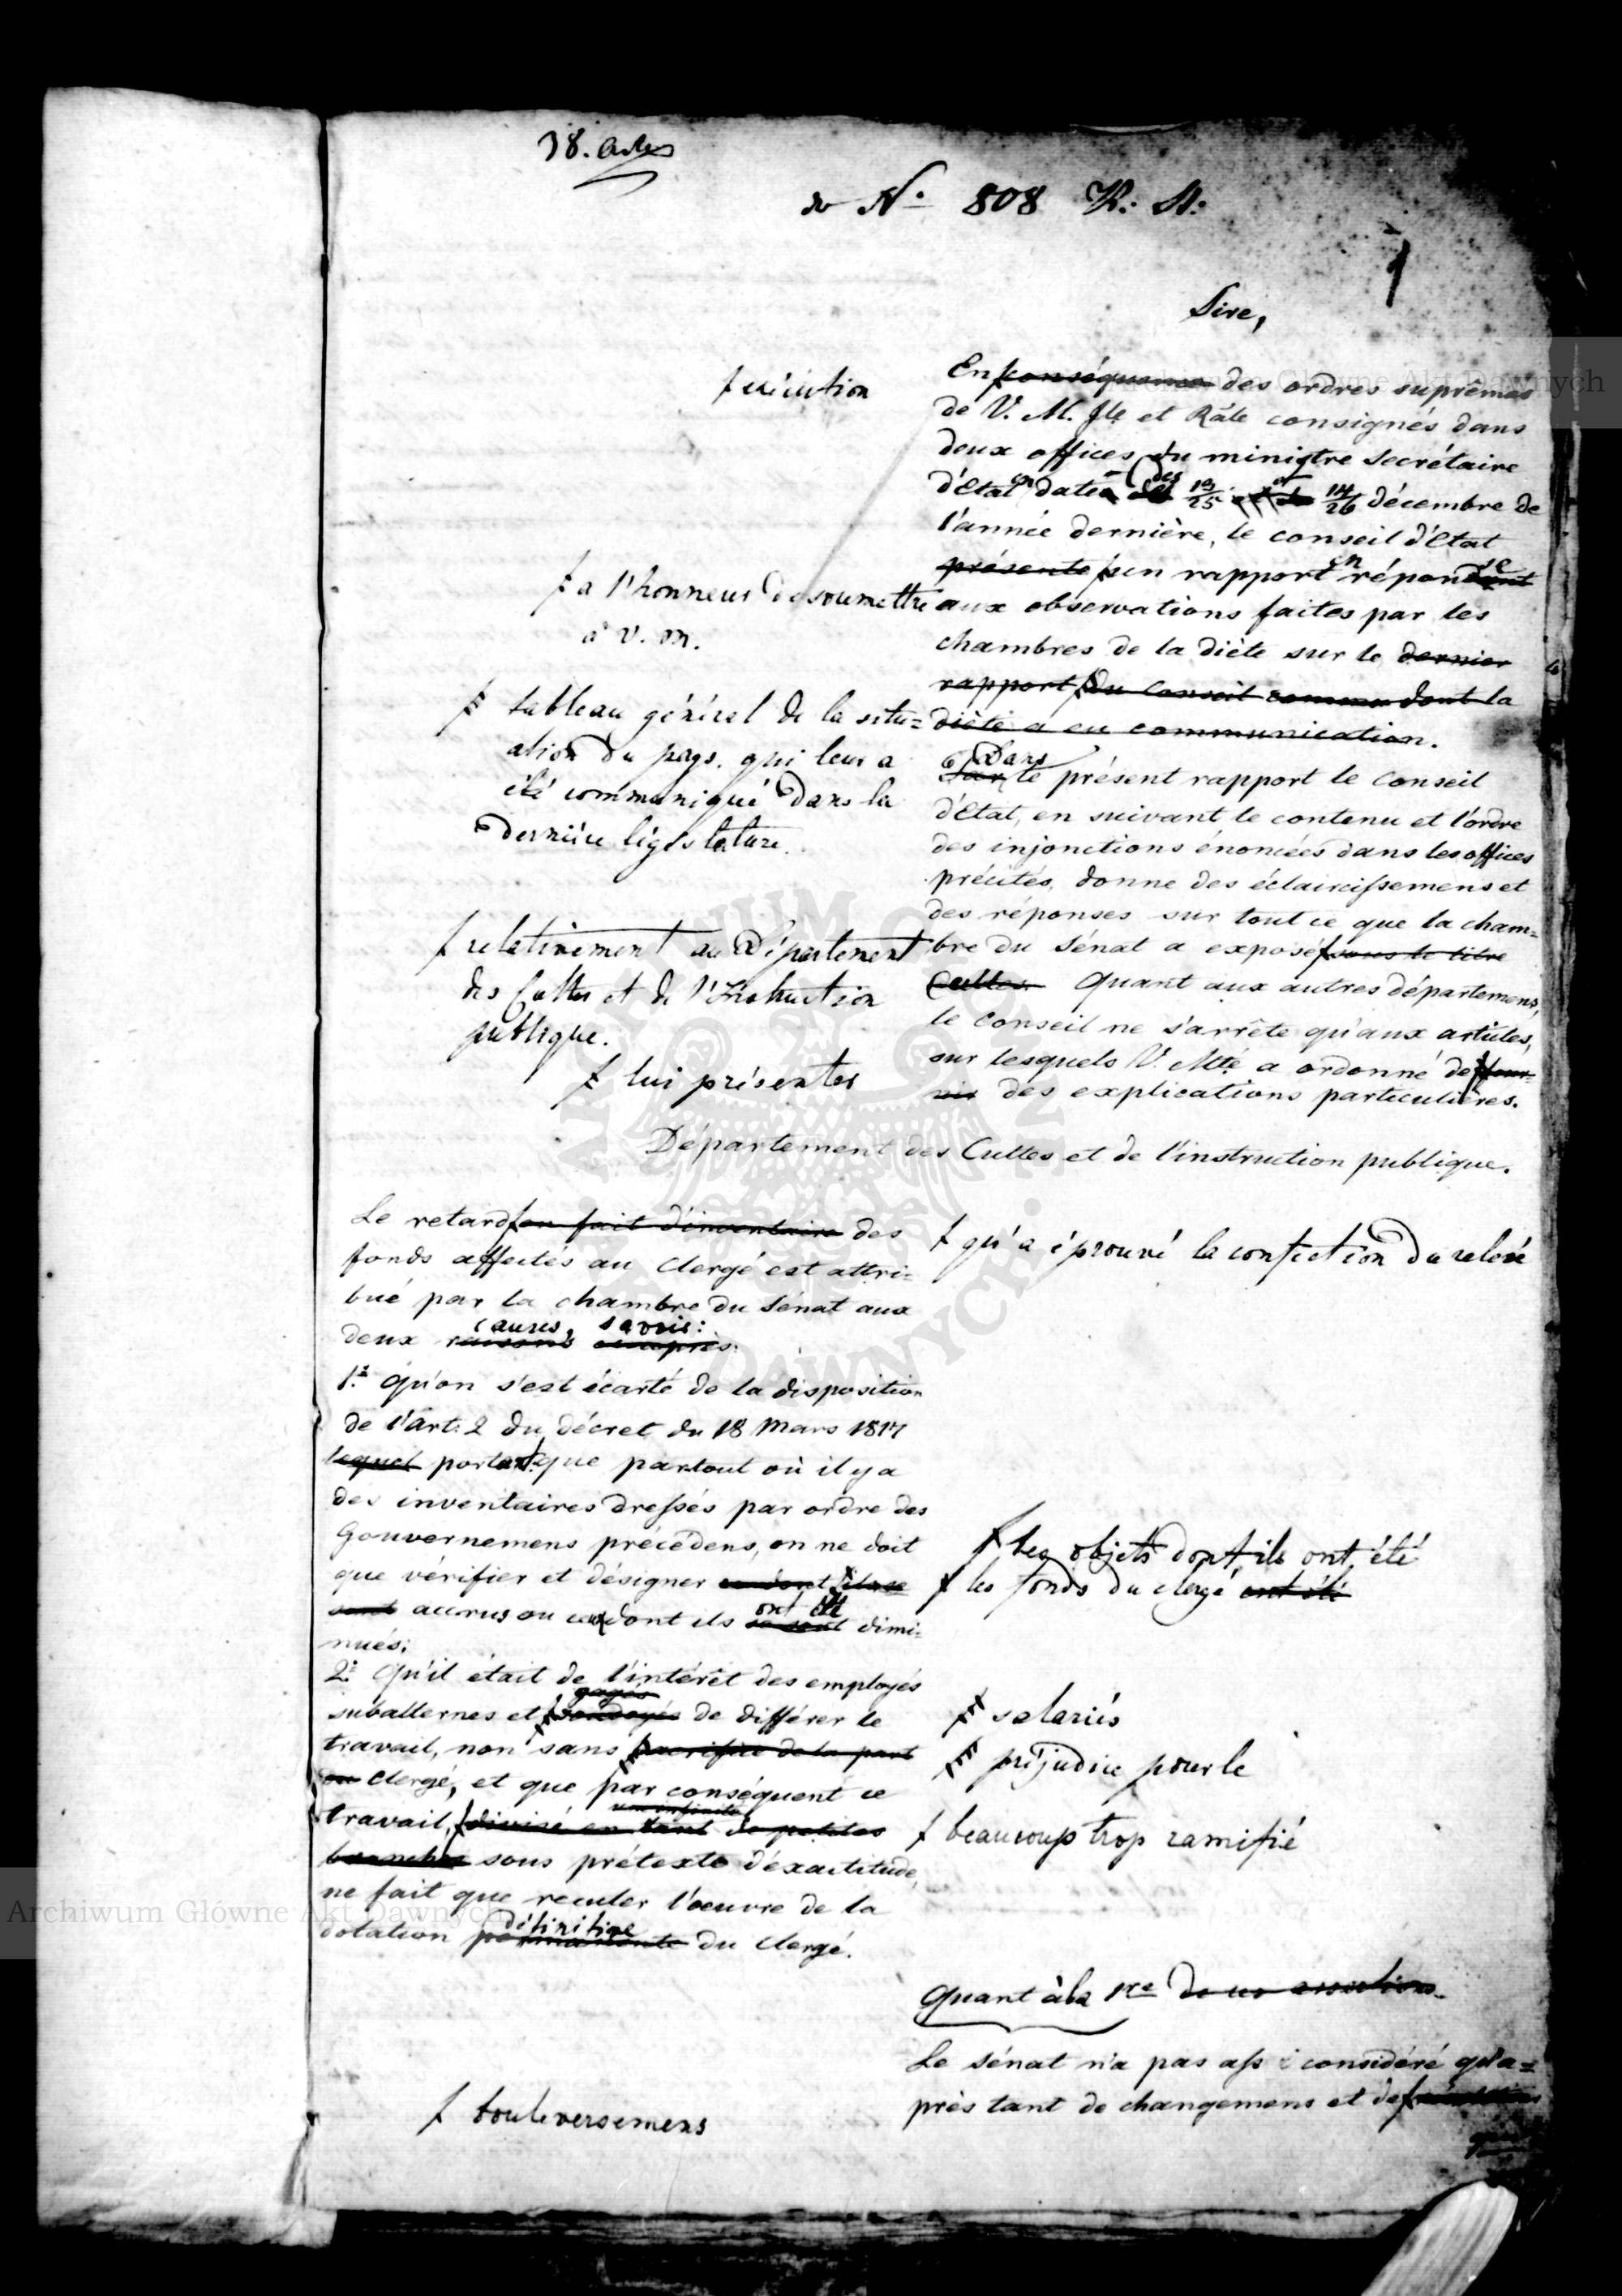 38. Actes
do Nº 808 R: St:
1
Sire,
En ƒ conséquence des ordres suprêmes
ƒ exécution
de V. M. Jle et Rāle consignés dans
deux offices du ministre secrétaire
d'État en date des 13/25 et 14/26 décembre de
l'année dernière, le conseil d'État
présente ƒ un rapport en réponse
ƒ a l'honneur de soumettre
à V. M.
aux observations faites par les
chambres de la diète sur le dernier
rapport ƒ du Conseil comme dont la
diète a eu communication.
ƒ tableau général de la situ=
ation du pays, qui leur a
été communiqué dans la
dernière législature.
Dans le présent rapport le Conseil
d'État, en suivant le contenu et l'ordre
des injonctions énoncées dans les offices
précités, donne des éclaircissemens et
des réponses sur tout ce que la cham=
bre du Sénat a exposé ƒ sous le titre
Cultes. Quant aux autres départemens,
ƒ relativement au Département
des Cultes et de l'Instruction
publique.
le Conseil ne s'arrête qu'aux articles,
sur lesquels V. Mté a ordonné de ƒ four=
nir des explications particulières.
ƒ lui présenter
Département des Cultes et de l'instruction publique.
Le retard ƒ en fait d'inventaire des
ƒ qu'a éprouvé la confection du relevé
fonds affectés au Clergé est attri=
bué par la chambre du Sénat aux
causes, savoir:
deux raisons
1º Qu'on s'est écarté de la disposition
de l'Art: 2 du décret du 18 Mars 1817
lequel portant que partout où il y a
des inventaires dressés par ordre des
Gouvernemens précédens, on ne doit
que vérifier et désigner
ƒ les objets dont ils ont été
ƒ les fonds du clergé ont été
sont accrus ou ceux dont ils ont été dimi=
nués;
2º Qu'il était de l'intérêt des employés
gagés
subalternes et ƒ soudoyés de différer le
ƒ salariés
travail, non sans ƒ sacrifice de la part
du Clergé, et que par conséquent ce
ƒ préjudice pour le
une infinité
travail, ƒ divisé en tant de petites
branches sous prétexte d'éxactitude,
ƒ beaucoup trop ramifié
ne fait que reculer l'oeuvre de la
définitive
dotation permanente du Clergé.
Quant à la 1re de ces assertions.
Le Sénat n'a pas assé considéré qu'a=
près tant de changemens et de ƒ
ƒ bouleversemens